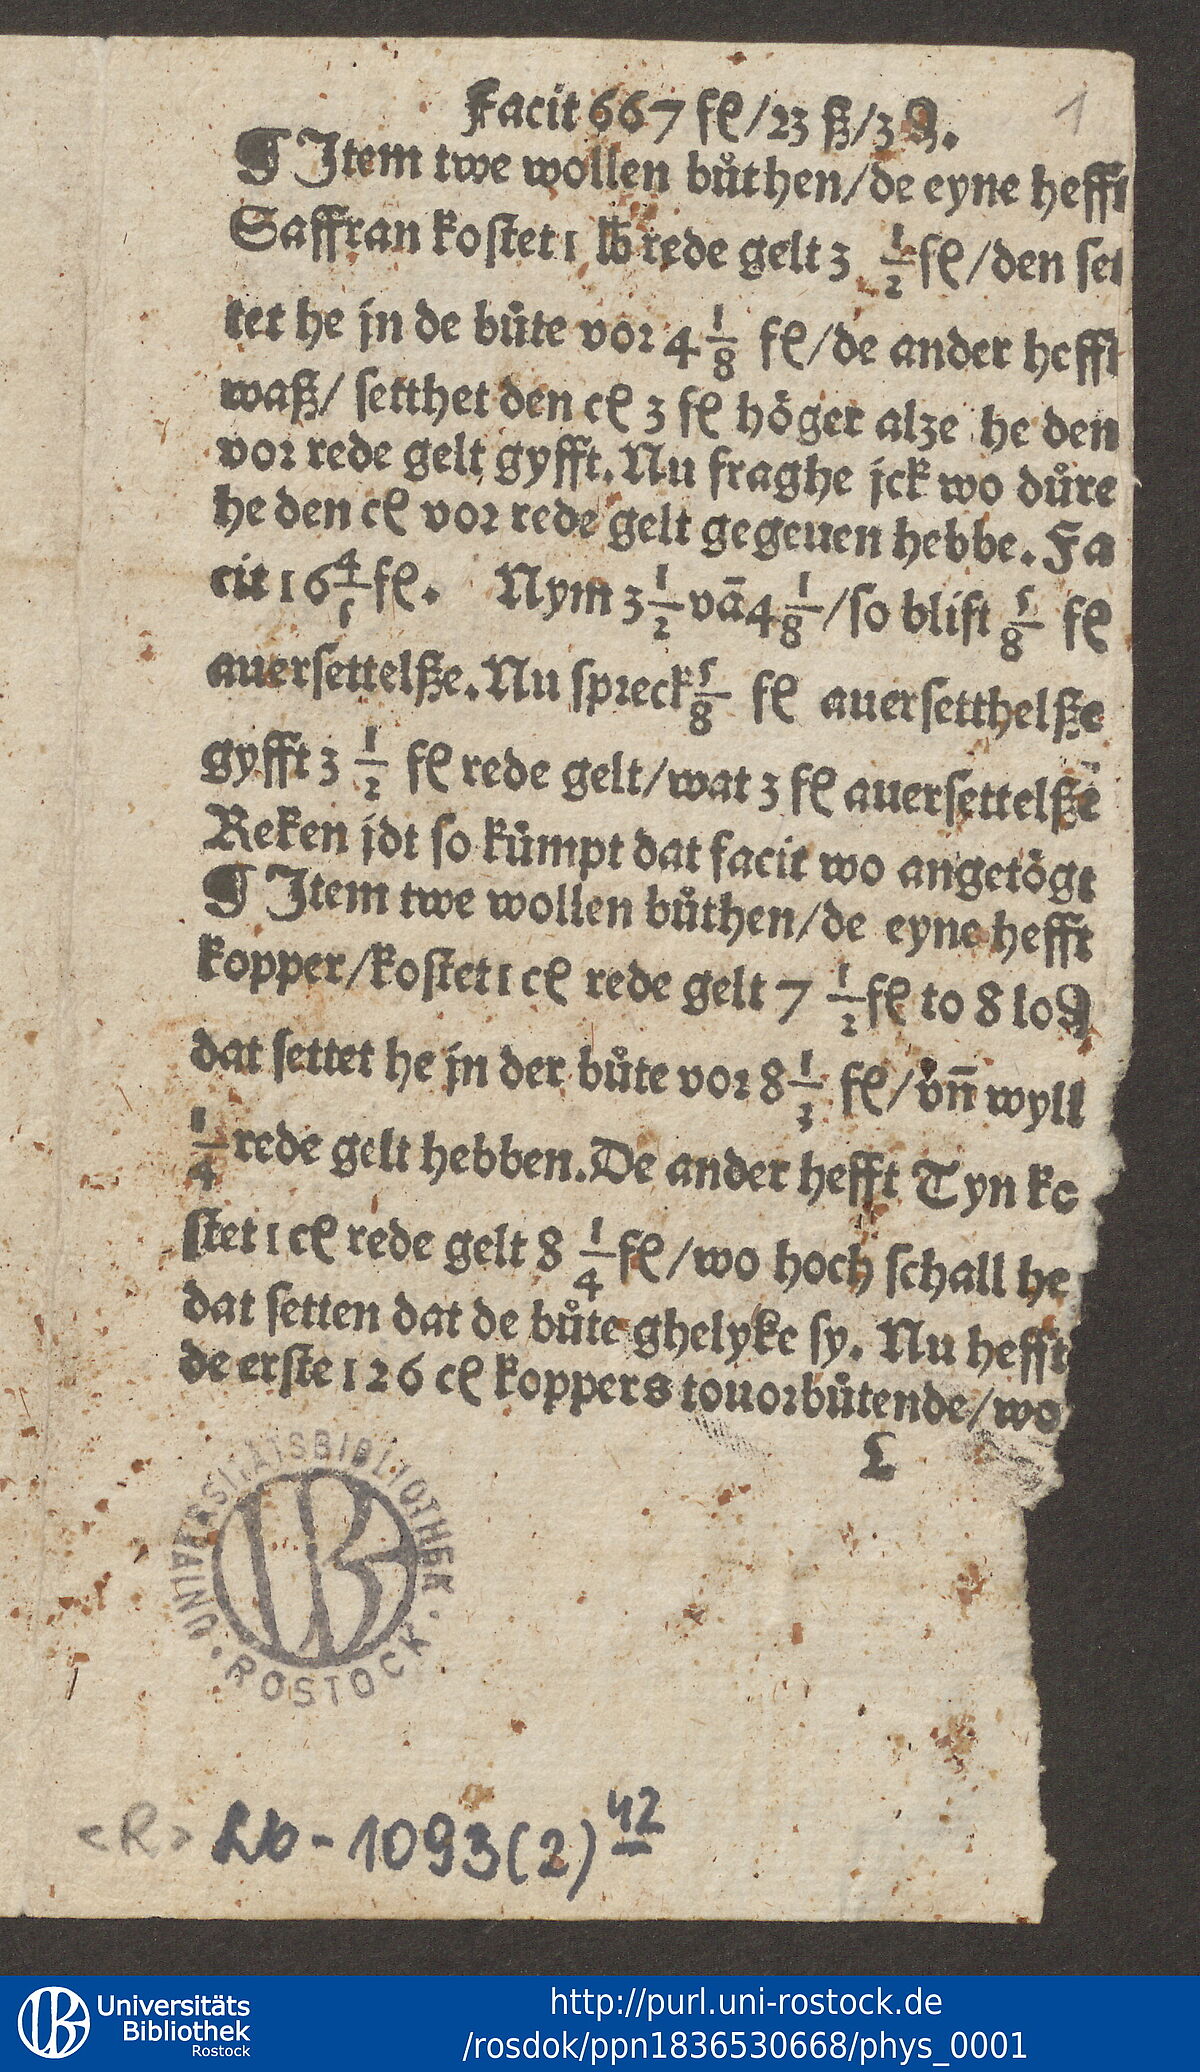 1
Facit 667 fl /23 ß/3 ₰.
¶ Item twe wollen bůthen/de eyne hefft
Saffran kostet 1 lb rede gelt 3 1/2 fl /den set
tet he jn de bůte vor 4 1/8 fl /de ander hefft
waß/ setthet den cl 3 fl höger alze he den
vor rede gelt gyfft. Nu fraghe jck wo důre
he den cl vor rede gelt gegeuen hebbe. Fa
cit 16 4/5 fl . Nym 3 1/2 vā 4 1/8 /so blift 5/8 fl
auersettelße. Nu spreck 5/8 fl auersetthelße
gyfft 3 1/2 fl rede gelt/wat 3 fl auersettelßē
Reken jdt so kůmpt dat facit wo angetögt
¶ Item twe wollen bůthen/de eyne hefft
kopper/kostet 1 cl rede gelt 7 1/2 fl to 8 lo₰
dat settet he jn der bůte vor 8 1/3 fl /vn̄ wyll
1/4 rede gelt hebben. De ander hefft Tyn ko
stet 1 cl rede gelt 8 1/4 fl /wo hoch schall he
dat setten dat de bůte ghelyke sy. Nu hefft
de erste 126 cl koppers touorbůtende/wo
L
UNIVERSITÄTSBIBLIOTHEK
· ROSTOCK ·
<R> Rb - 1093 (2) 42
Universitäts
Bibliothek
Rostock
http://purl.uni-rostock.de
/rosdok/ppn1836530668/phys_0001